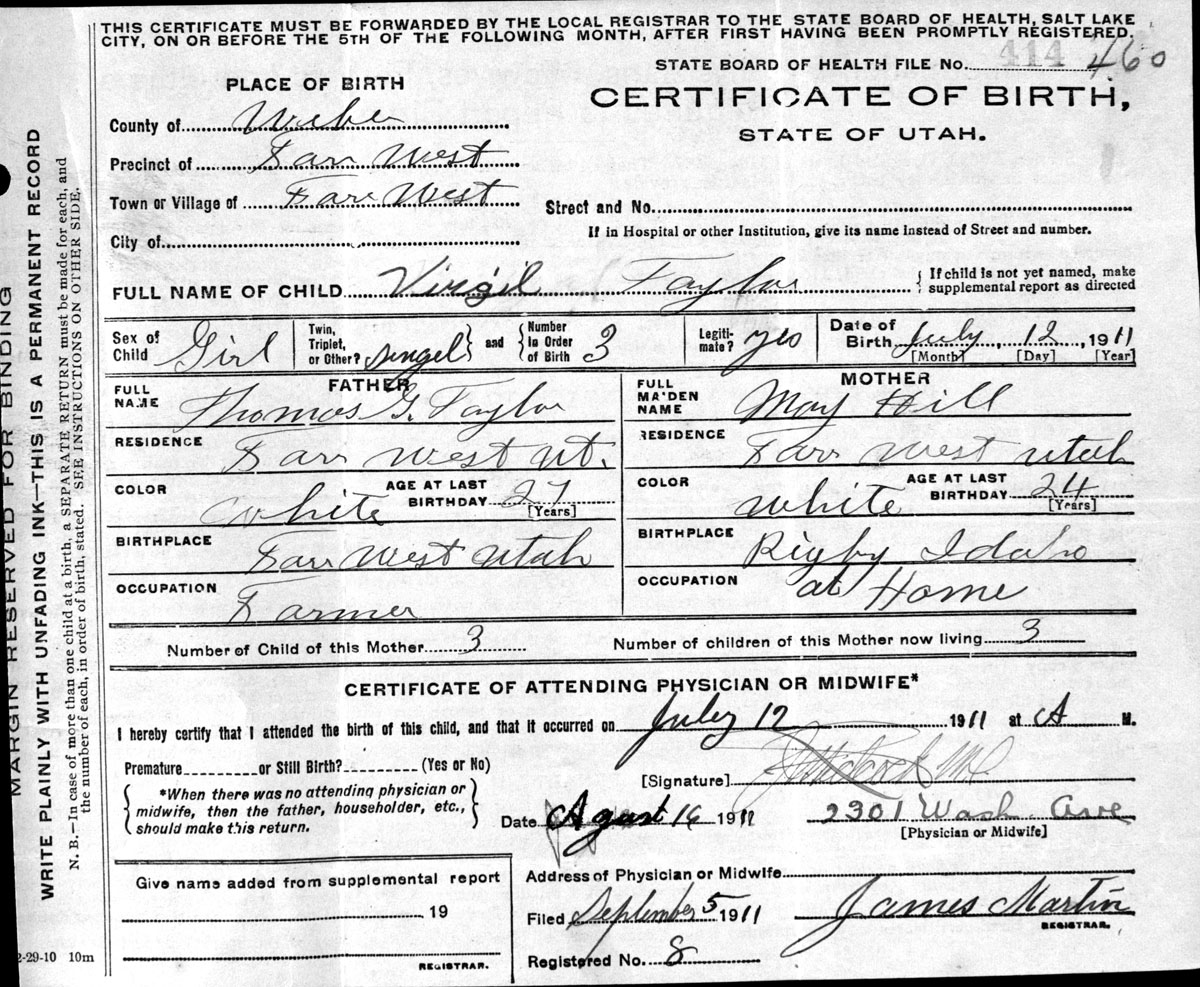 THIS CERTIFICATE MUST BE FORWARDED BY THE LOCAL REGISTRAR TO THE STATE BOARD OF HEALTH, SALT LAKE
CITY, ON OR BEFORE THE 5TH OF THE FOLLOWING MONTH, AFTER FIRST HAVING BEEN PROMPTLY REGISTERED.
STATE BOARD OF HEALTH FILE No. 414 460
PLACE OF BIRTH
CERTIFICATE OF BIRTH,
STATE OF UTAH.
County of Weber
Precinct of Farr West
Town or Village of Farr West
Street and No.
If in Hospital or other Institution, give its name instead of Street and number.
City of
FULL NAME OF CHILD Virgil Taylor
{ If child is not yet named, make
supplemental report as directed
Sex of Child Girl Twin, Triplet, or Other? singel and Number in Order of Birth 3 Legiti-mate? yes Date of Birth July, 12, 1911
[Month] [Day] [Year]
FATHER
FULL NAME Thomas G. Taylor
RESIDENCE Farr West Ut.
COLOR White AGE AT LAST BIRTHDAY 27
[Years]
BIRTHPLACE Farr West Utah
OCCUPATION Farmer
MOTHER
FULL MAIDEN NAME May Hill
RESIDENCE Farr West Utah
COLOR White AGE AT LAST BIRTHDAY 24
[Years]
BIRTHPLACE Rigby Idaho
OCCUPATION at Home
Number of Child of this Mother 3 Number of children of this Mother now living 3
CERTIFICATE OF ATTENDING PHYSICIAN OR MIDWIFE*
I hereby certify that I attended the birth of this child, and that it occurred on July 12 1911 at A M.
Premature or Still Birth? (Yes or No)
[Signature] MD
{ *When there was no attending physician or
midwife, then the father, householder, etc.,
should make this return. }
Date Agust 16 1911 2301 Wash. Ave
[Physician or Midwife]
Give name added from supplemental report
19
REGISTRAR.
Address of Physician or Midwife
Filed September 5 1911 James Martin
REGISTRAR.
Registered No. 8
2-29-10 10m
MARGIN RESERVED FOR BINDING
WRITE PLAINLY WITH UNFADING INK—THIS IS A PERMANENT RECORD
N. B.—In case of more than one child at a birth, a SEPARATE RETURN must be made for each, and
the number of each, in order of birth, stated. SEE INSTRUCTIONS ON OTHER SIDE.